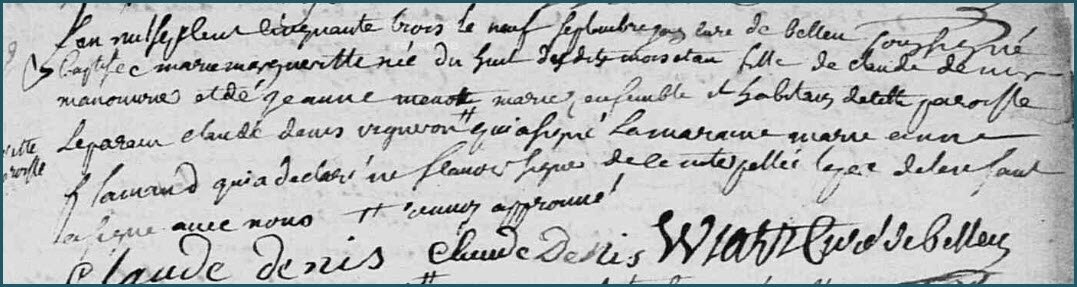 L'an mil sept cent cinquante trois le neuf septembre par curé de belleu soussigné
baptisée marie margueritte née du huit desdits mois et an fille de claude denis
manouvrié et de jeanne menott mariez ensemble et habitans de cette paroisse
le parain claude denis vigneron # qui a signé La maraine marie anne
flamand qui a declaré ne scavoir signer de ce interpellée le pere de lenfant
a signé avec nous # approuvé
Claude denis Claude Denis Wiart Curé de belleu